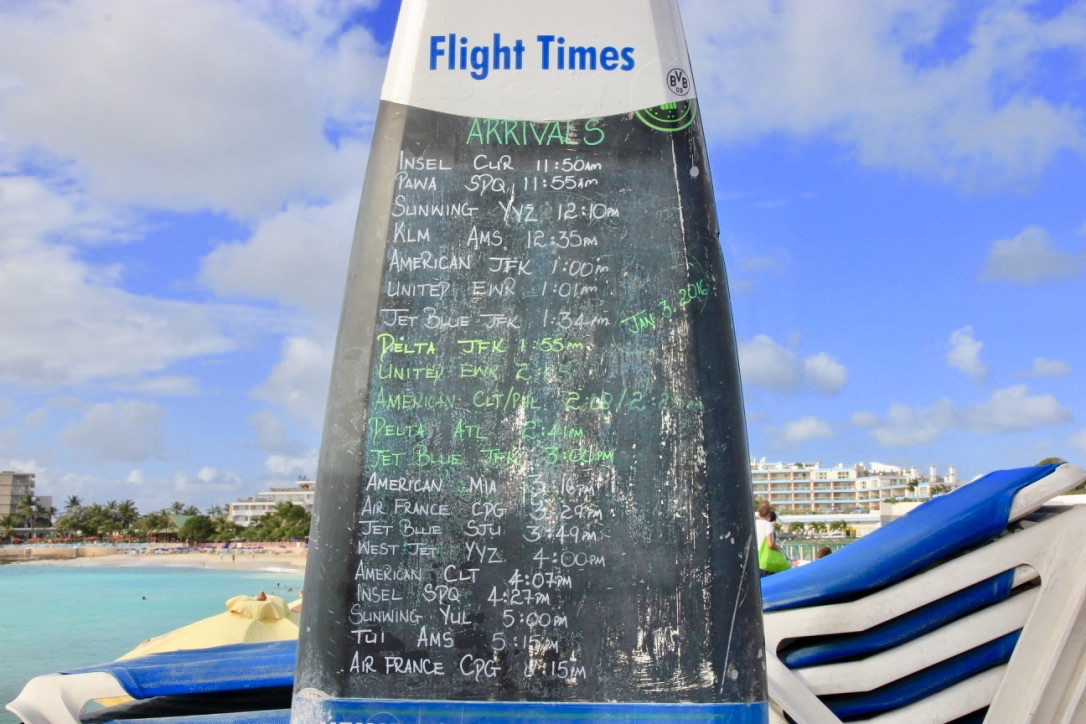 Flight Times
BVB
09
ARRIVALS
INSEL CUR 11:50AM
PAWA SDQ 11:55AM
SUNWING YYZ 12:10PM
KLM AMS 12:35PM
AMERICAN JFK 1:00PM
UNITED EWR 1:01PM
JET BLUE JFK 1:34PM
JAN 3. 2016
DELTA JFK 1:55PM
UNITED EWR
AMERICAN CLT/PHL
DELTA ATL 2:41PM
JET BLUE JFK
AMERICAN MIA 3:16PM
AIR FRANCE CPG 3:29PM
JET BLUE SJU 3:49PM
WEST JET YYZ 4:00PM
AMERICAN CLT 4:07PM
INSEL SDQ 4:27PM
SUNWING YUL 5:00PM
TUI AMS 5:15PM
AIR FRANCE CPG